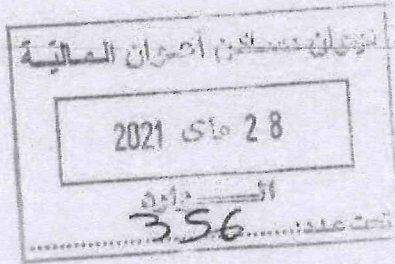 ديوان مساكن أعوان المالية
28 ماي 2021
الـــــواردة
تحت عدد: 356